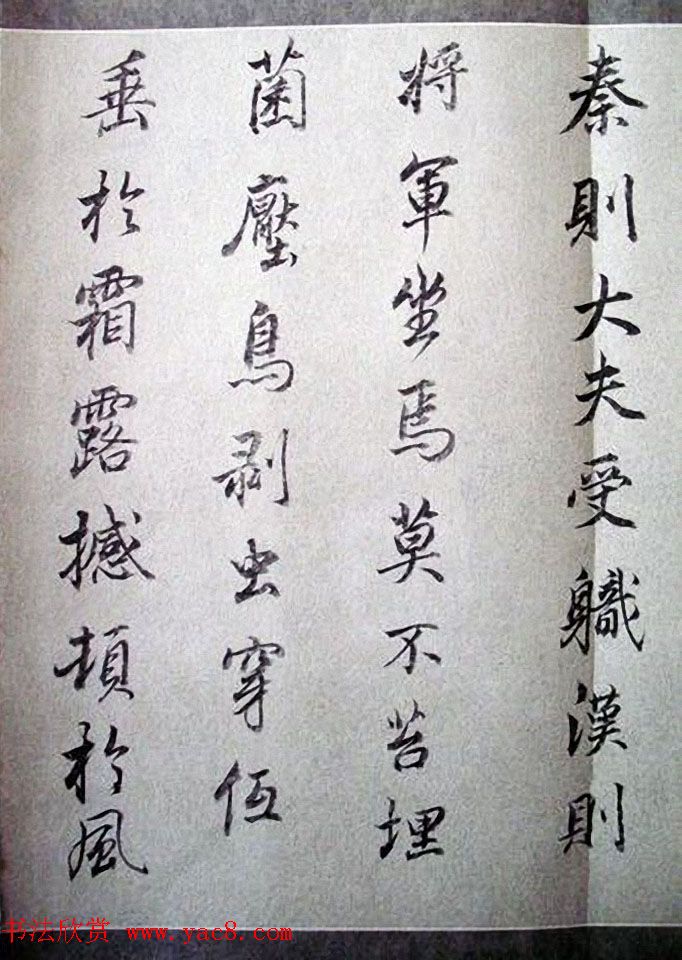 秦則大夫受軄漢則
将軍坐焉莫不苔埋
菌壓鳥剥虫穿低
垂於霜露撼頓於風
书法欣赏 www.yac8.com